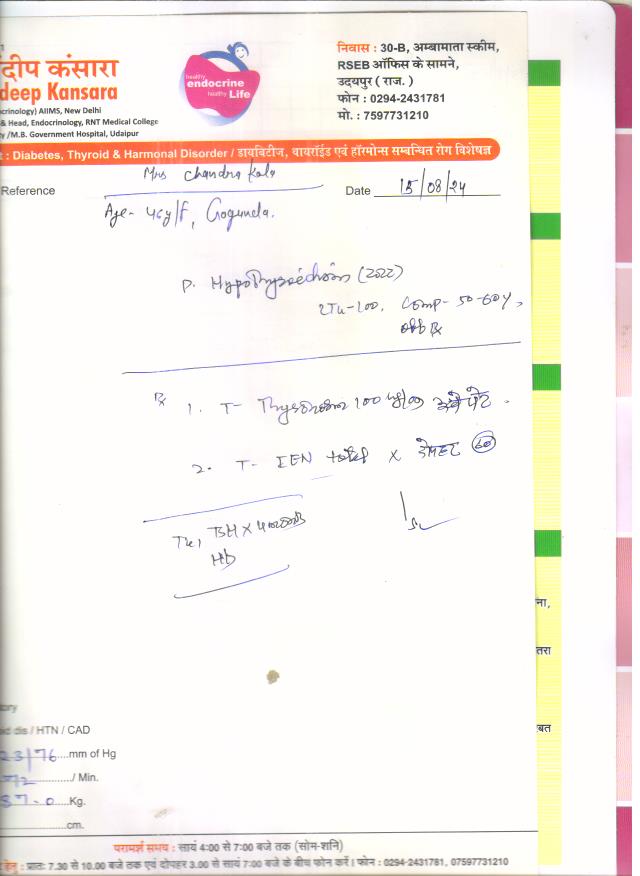 दीप कंसारा
deep Kansara
crinology) AIIMS, New Delhi
& Head, Endocrinology, RNT Medical College
y /M.B. Government Hospital, Udaipur
healthy
endocrine
healthy Life
निवास : 30-B, अम्बामाता स्कीम,
RSEB ऑफिस के सामने,
उदयपुर ( राज. )
फोन : 0294-2431781
मो. : 7597731210
: Diabetes, Thyroid & Harmonal Disorder / डायबिटीज, थायरॉईड एवं हॉरमोन्स सम्बन्धित रोग विशेषज्ञ
Mrs Chandra Kala
Reference
Date 15/08/24
Age- 46y/F, Gogunda.
(2022)
100, Comp- 50-60%,
Rx
1. T- 100
2. T- x 60
TSH X
Hb
ना,
तरा
बत
ory
id dis / HTN / CAD
23/76 mm of Hg
72 / Min.
37.0 Kg.
cm.
परामर्श समय : सायं 4:00 से 7:00 बजे तक (सोम-शनि)
हेतु : प्रातः 7.30 से 10.00 बजे तक एवं दोपहर 3.00 से सायं 7:00 बजे के बीच फोन करें। फोन : 0294-2431781, 07597731210